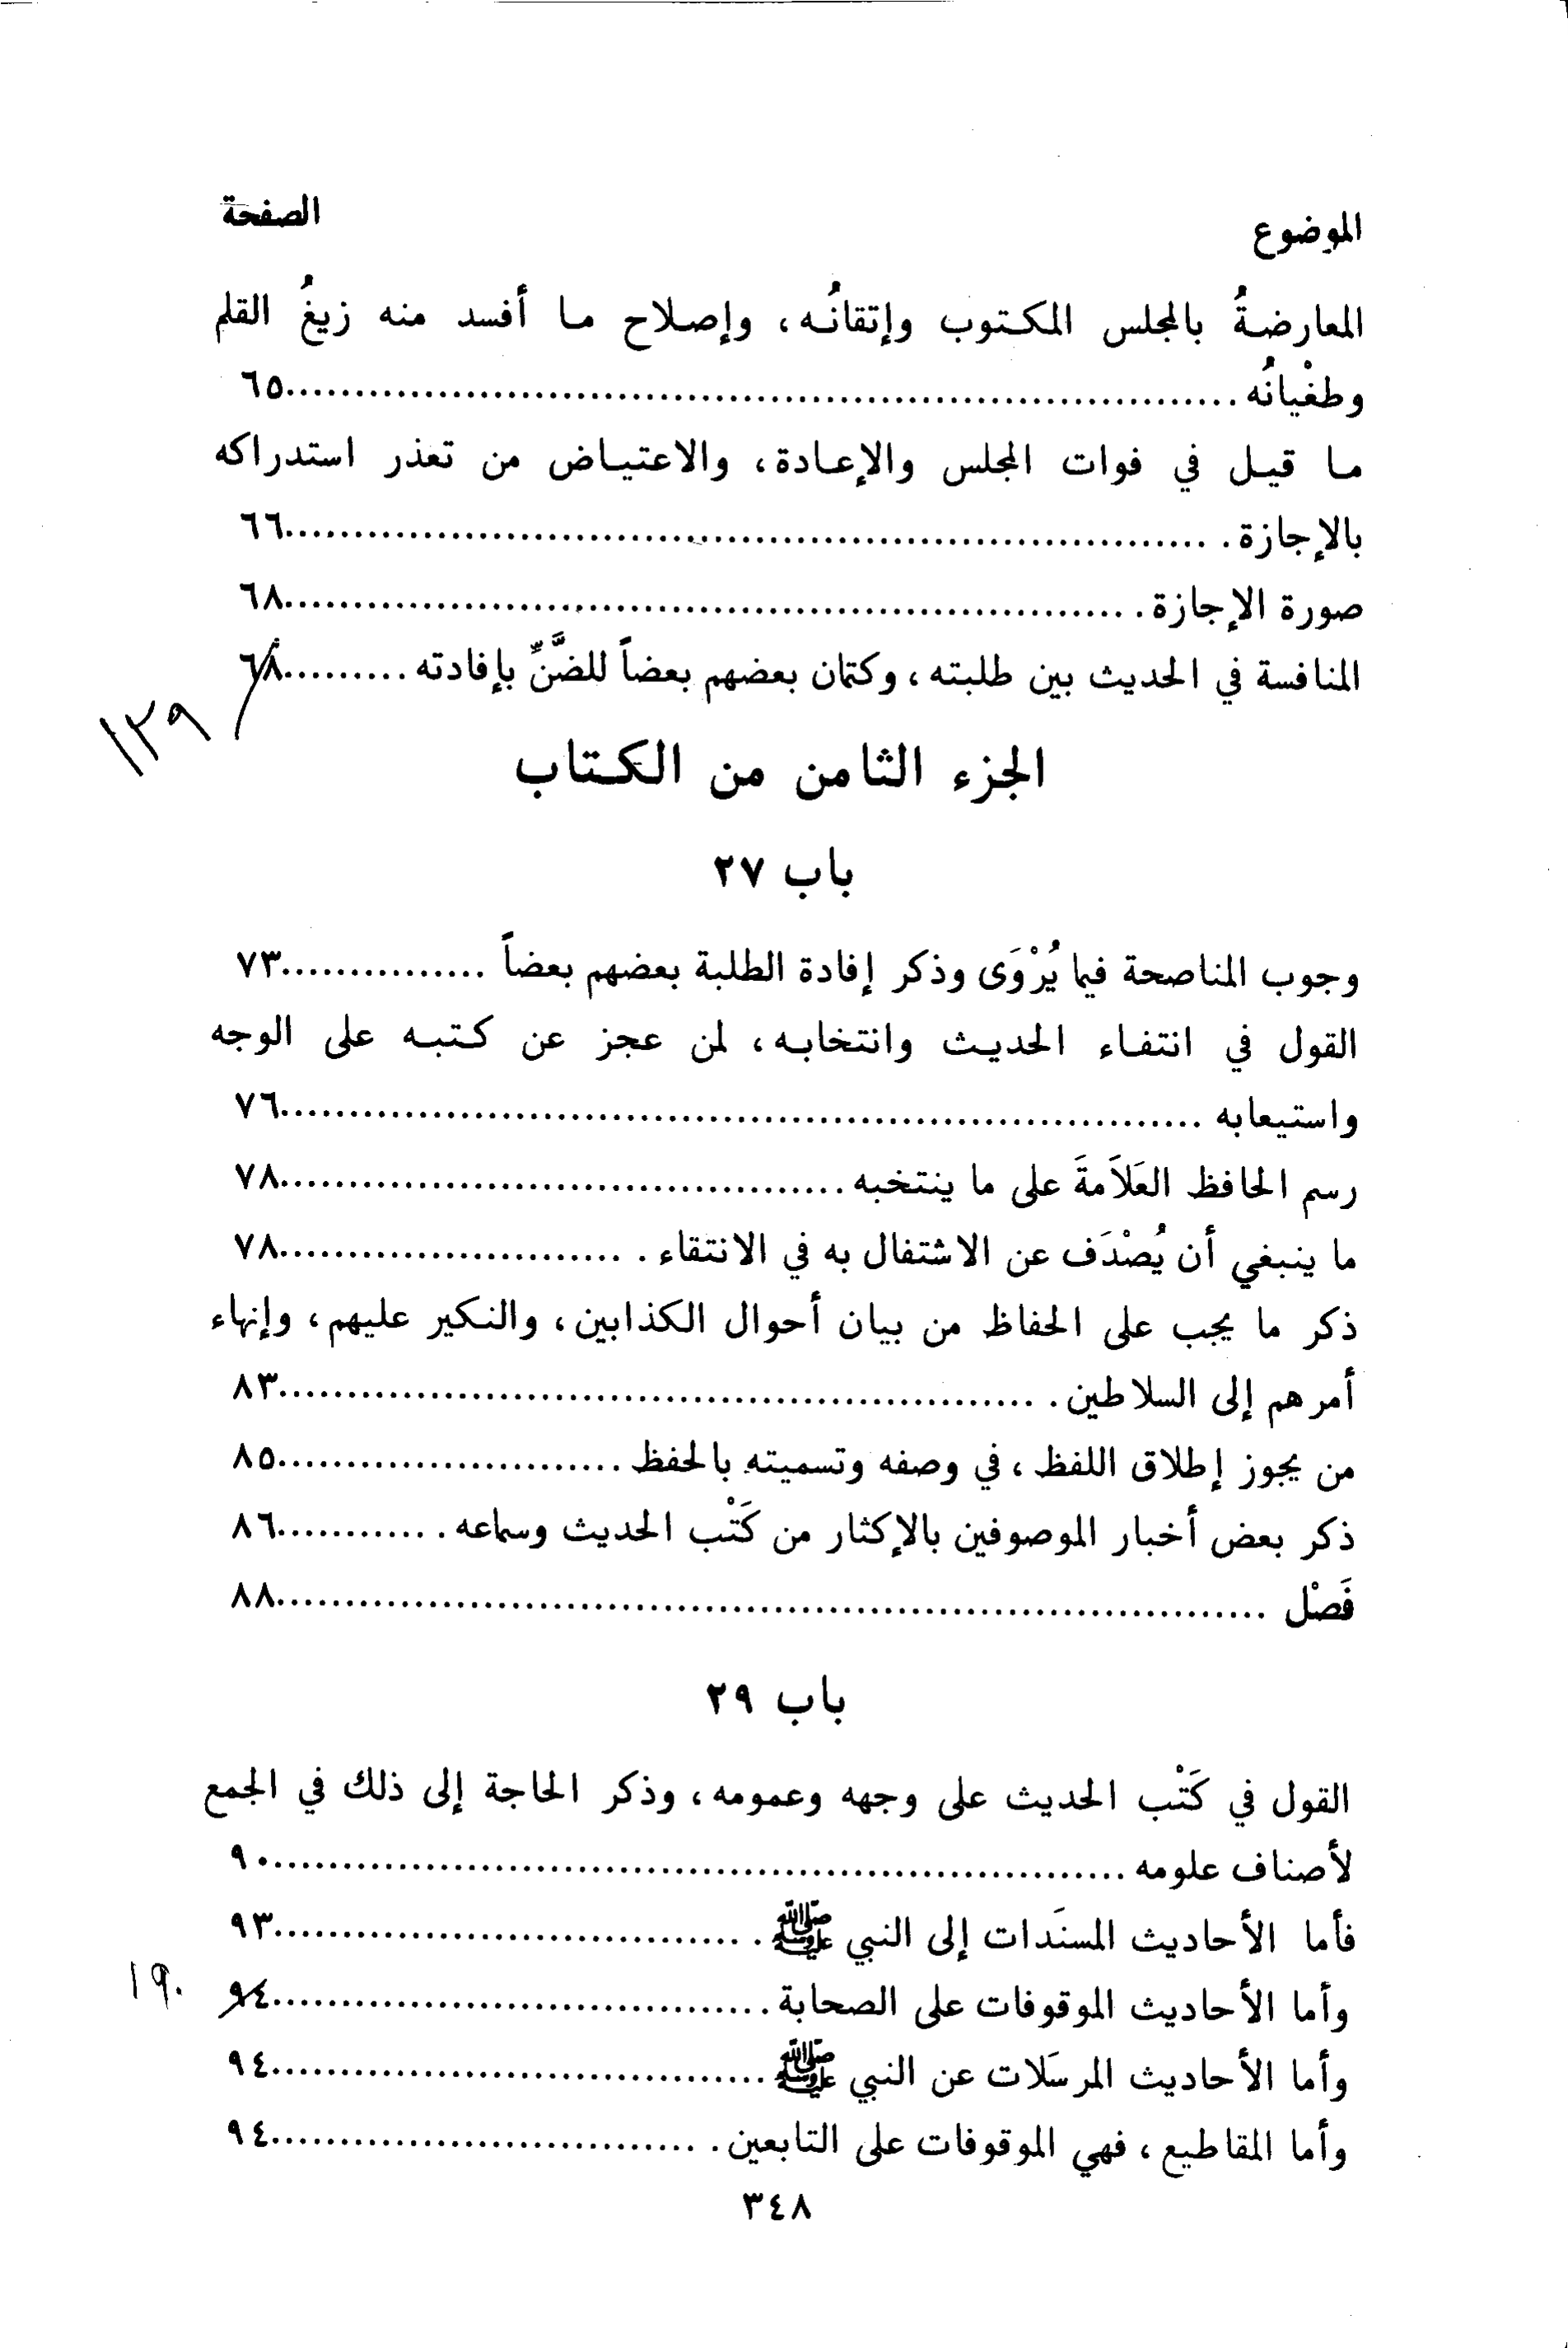 الموضوع الصفحة
المعارضةُ بالمجلس المكتوب وإتقانُه، وإصلاح ما أفسد منه زيغُ القلم
وطغْيانُه ..........٦٥
ما قيل في فوات المجلس والإعادة، والاعتياض من تعذر استدراكه
بالإجازة ..........٦٦
صورة الإجازة ..........٦٨
المنافسة في الحديث بين طلبته، وكتمان بعضهم بعضاً للضَّنِّ بإفادته ..........٦٨
١٢٩
الجزء الثامن من الكتاب
باب ٢٧
وجوب المناصحة فيما يُرْوَى وذكر إفادة الطلبة بعضهم بعضاً ..........٧٣
القول في انتفاء الحديث وانتخابه، لمن عجز عن كتبه على الوجه
واستيعابه ..........٧٦
رسم الحافظ العَلاَمةَ على ما ينتخبه ..........٧٨
ما ينبغي أن يُصْدَف عن الاشتفال به في الانتقاء ..........٧٨
ذكر ما يجب على الحفاظ من بيان أحوال الكذابين، والنكير عليهم، وإنهاء
أمرهم إلى السلاطين ..........٨٣
من يجوز إطلاق اللفظ، في وصفه وتسميته بالحفظ ..........٨٥
ذكر بعض أخبار الموصوفين بالإكثار من كَتْب الحديث وسماعه ..........٨٦
فَصْل ..........٨٨
باب ٢٩
القول في كَتْب الحديث على وجهه وعمومه، وذكر الحاجة إلى ذلك في الجمع
لأصناف علومه ..........٩٠
فأما الأحاديث المسنَدات إلى النبي ﷺ ..........٩٣
وأما الأحاديث الموقوفات على الصحابة ..........٩٤ ١٩٠
وأما الأحاديث المرسَلات عن النبي ﷺ ..........٩٤
وأما المقاطيع، فهي الموقوفات على التابعين ..........٩٤
٣٤٨